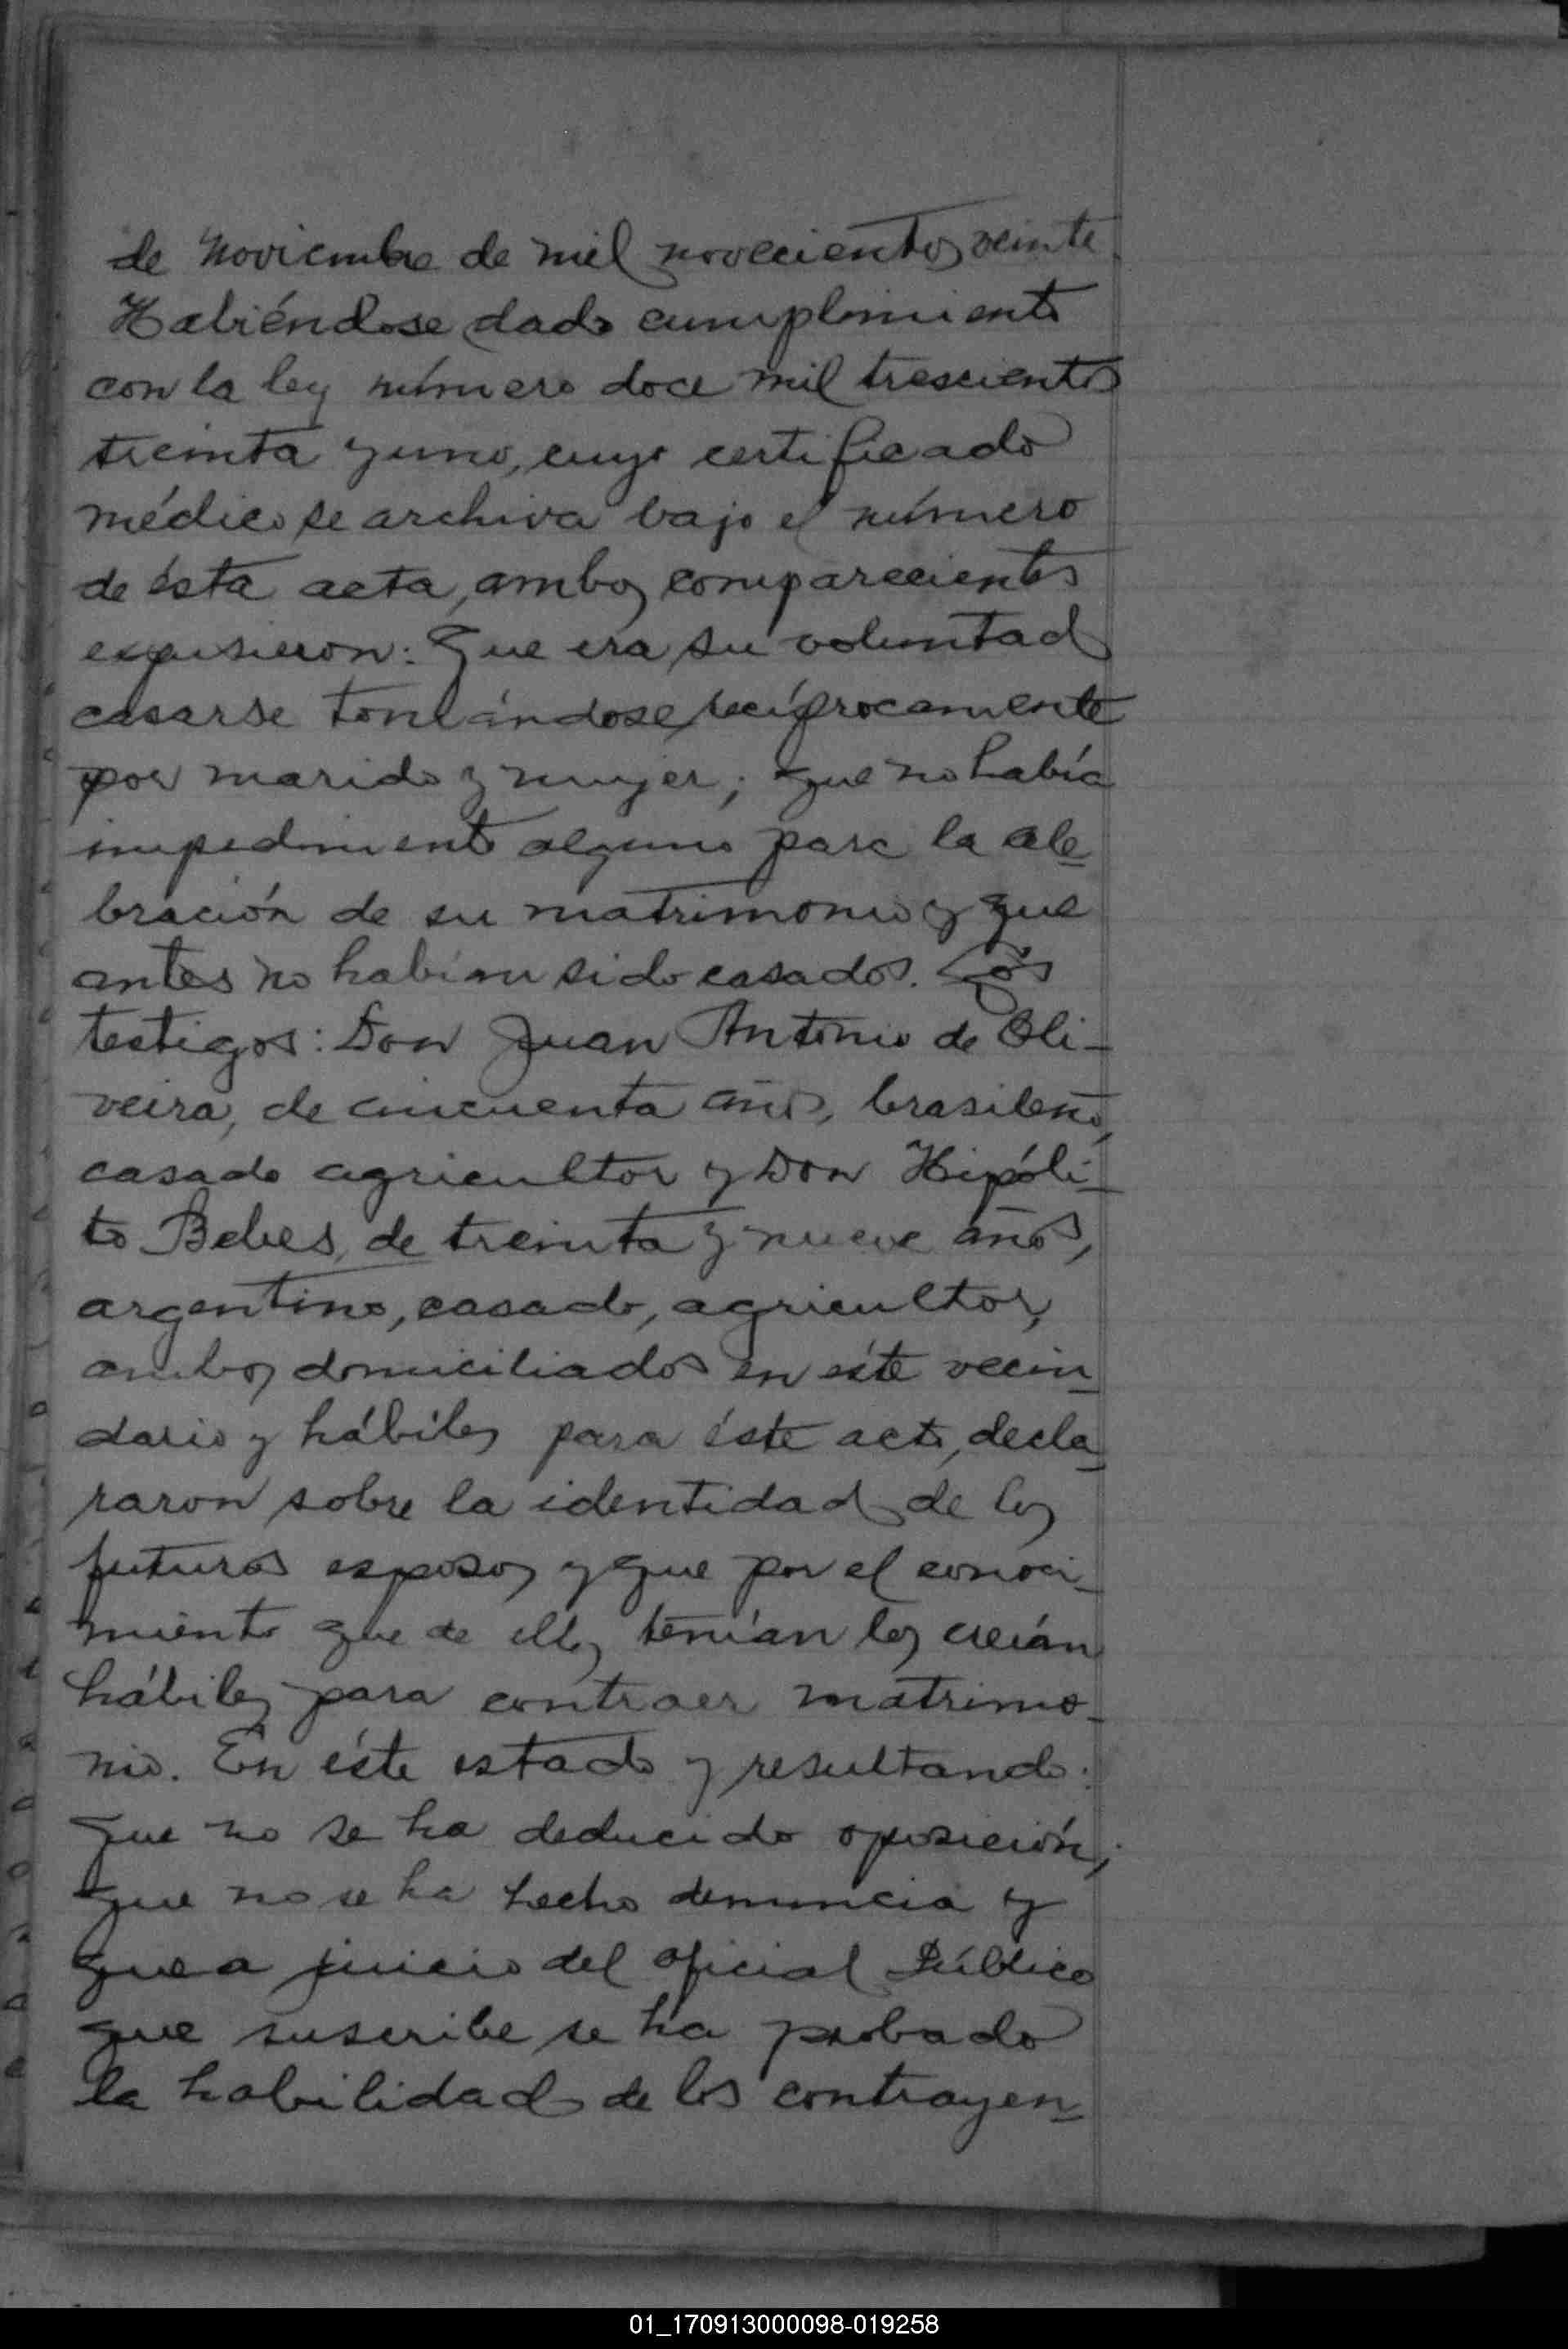 de Noviembre de mil novecientos veinte.
Habiéndose dado cumplimiento
con la ley número doce mil trescientos
treinta y uno, cuyo certificado
médico se archiva bajo el número
de ésta acta, ambos comparecientes
expusieron: Que era su voluntad
casarse tomándose recíprocamente
por marido y mujer; que no había
impedimento alguno para la cele-
bración de su matrimonio y que
antes no habían sido casados. Los
testigos: Don Juan Antonio de Oli-
veira, de cincuenta años, brasileño,
casado agricultor y Don Hipóli-
to Bebes, de treinta y nueve años,
argentino, casado, agricultor,
ambos domiciliados en éste vecin-
dario y hábiles para éste acto, decla-
raron sobre la identidad de los
futuros esposos y que por el conoci-
miento que de ellos tenían los creían
hábiles para contraer matrimo-
nio. En éste estado y resultando:
que no se ha deducido oposición;
que no se ha hecho denuncia y
que a juicio del oficial Público
que suscribe se ha probado
la habilidad de los contrayen-
01_170913000098-019258